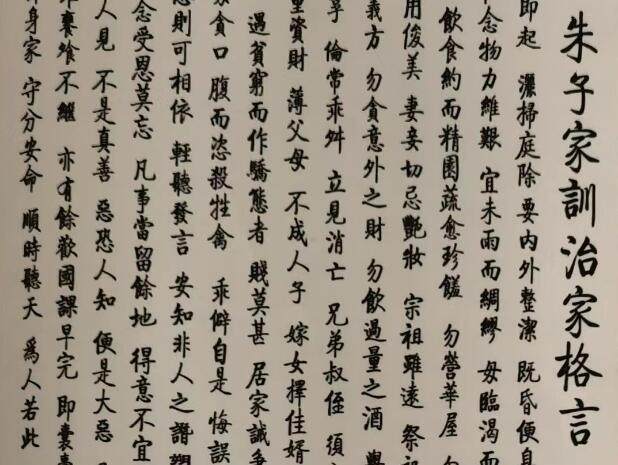 朱子家訓治家格言
即起 灑掃庭除 要內外整潔 既昏便息
念物力維艱 宜未雨而綢繆 毋臨渴而
飲食約而精園蔬愈珍饈 勿營華屋 勿
用俊美 妻妾切忌艷妝 宗祖雖遠 祭祀
義方 勿貪意外之財 勿飲過量之酒 與
倫常乖舛 立見消亡 兄弟叔侄 須
重資財 薄父母 不成人子 嫁女擇佳婿
遇貧窮而作驕態者 賤莫甚 居家誡爭
勿貪口腹而恣殺牲禽 乖僻自是 悔誤
忍則可相依 輕聽發言 安知非人之譖塑
念受恩莫忘 凡事當留餘地 得意不宜
人見 不是真善 惡恐人知 便是大惡
雖饔飧不繼 亦有餘歡 國課早完 即囊橐
身家 守分安命 順時聽天 爲人若此